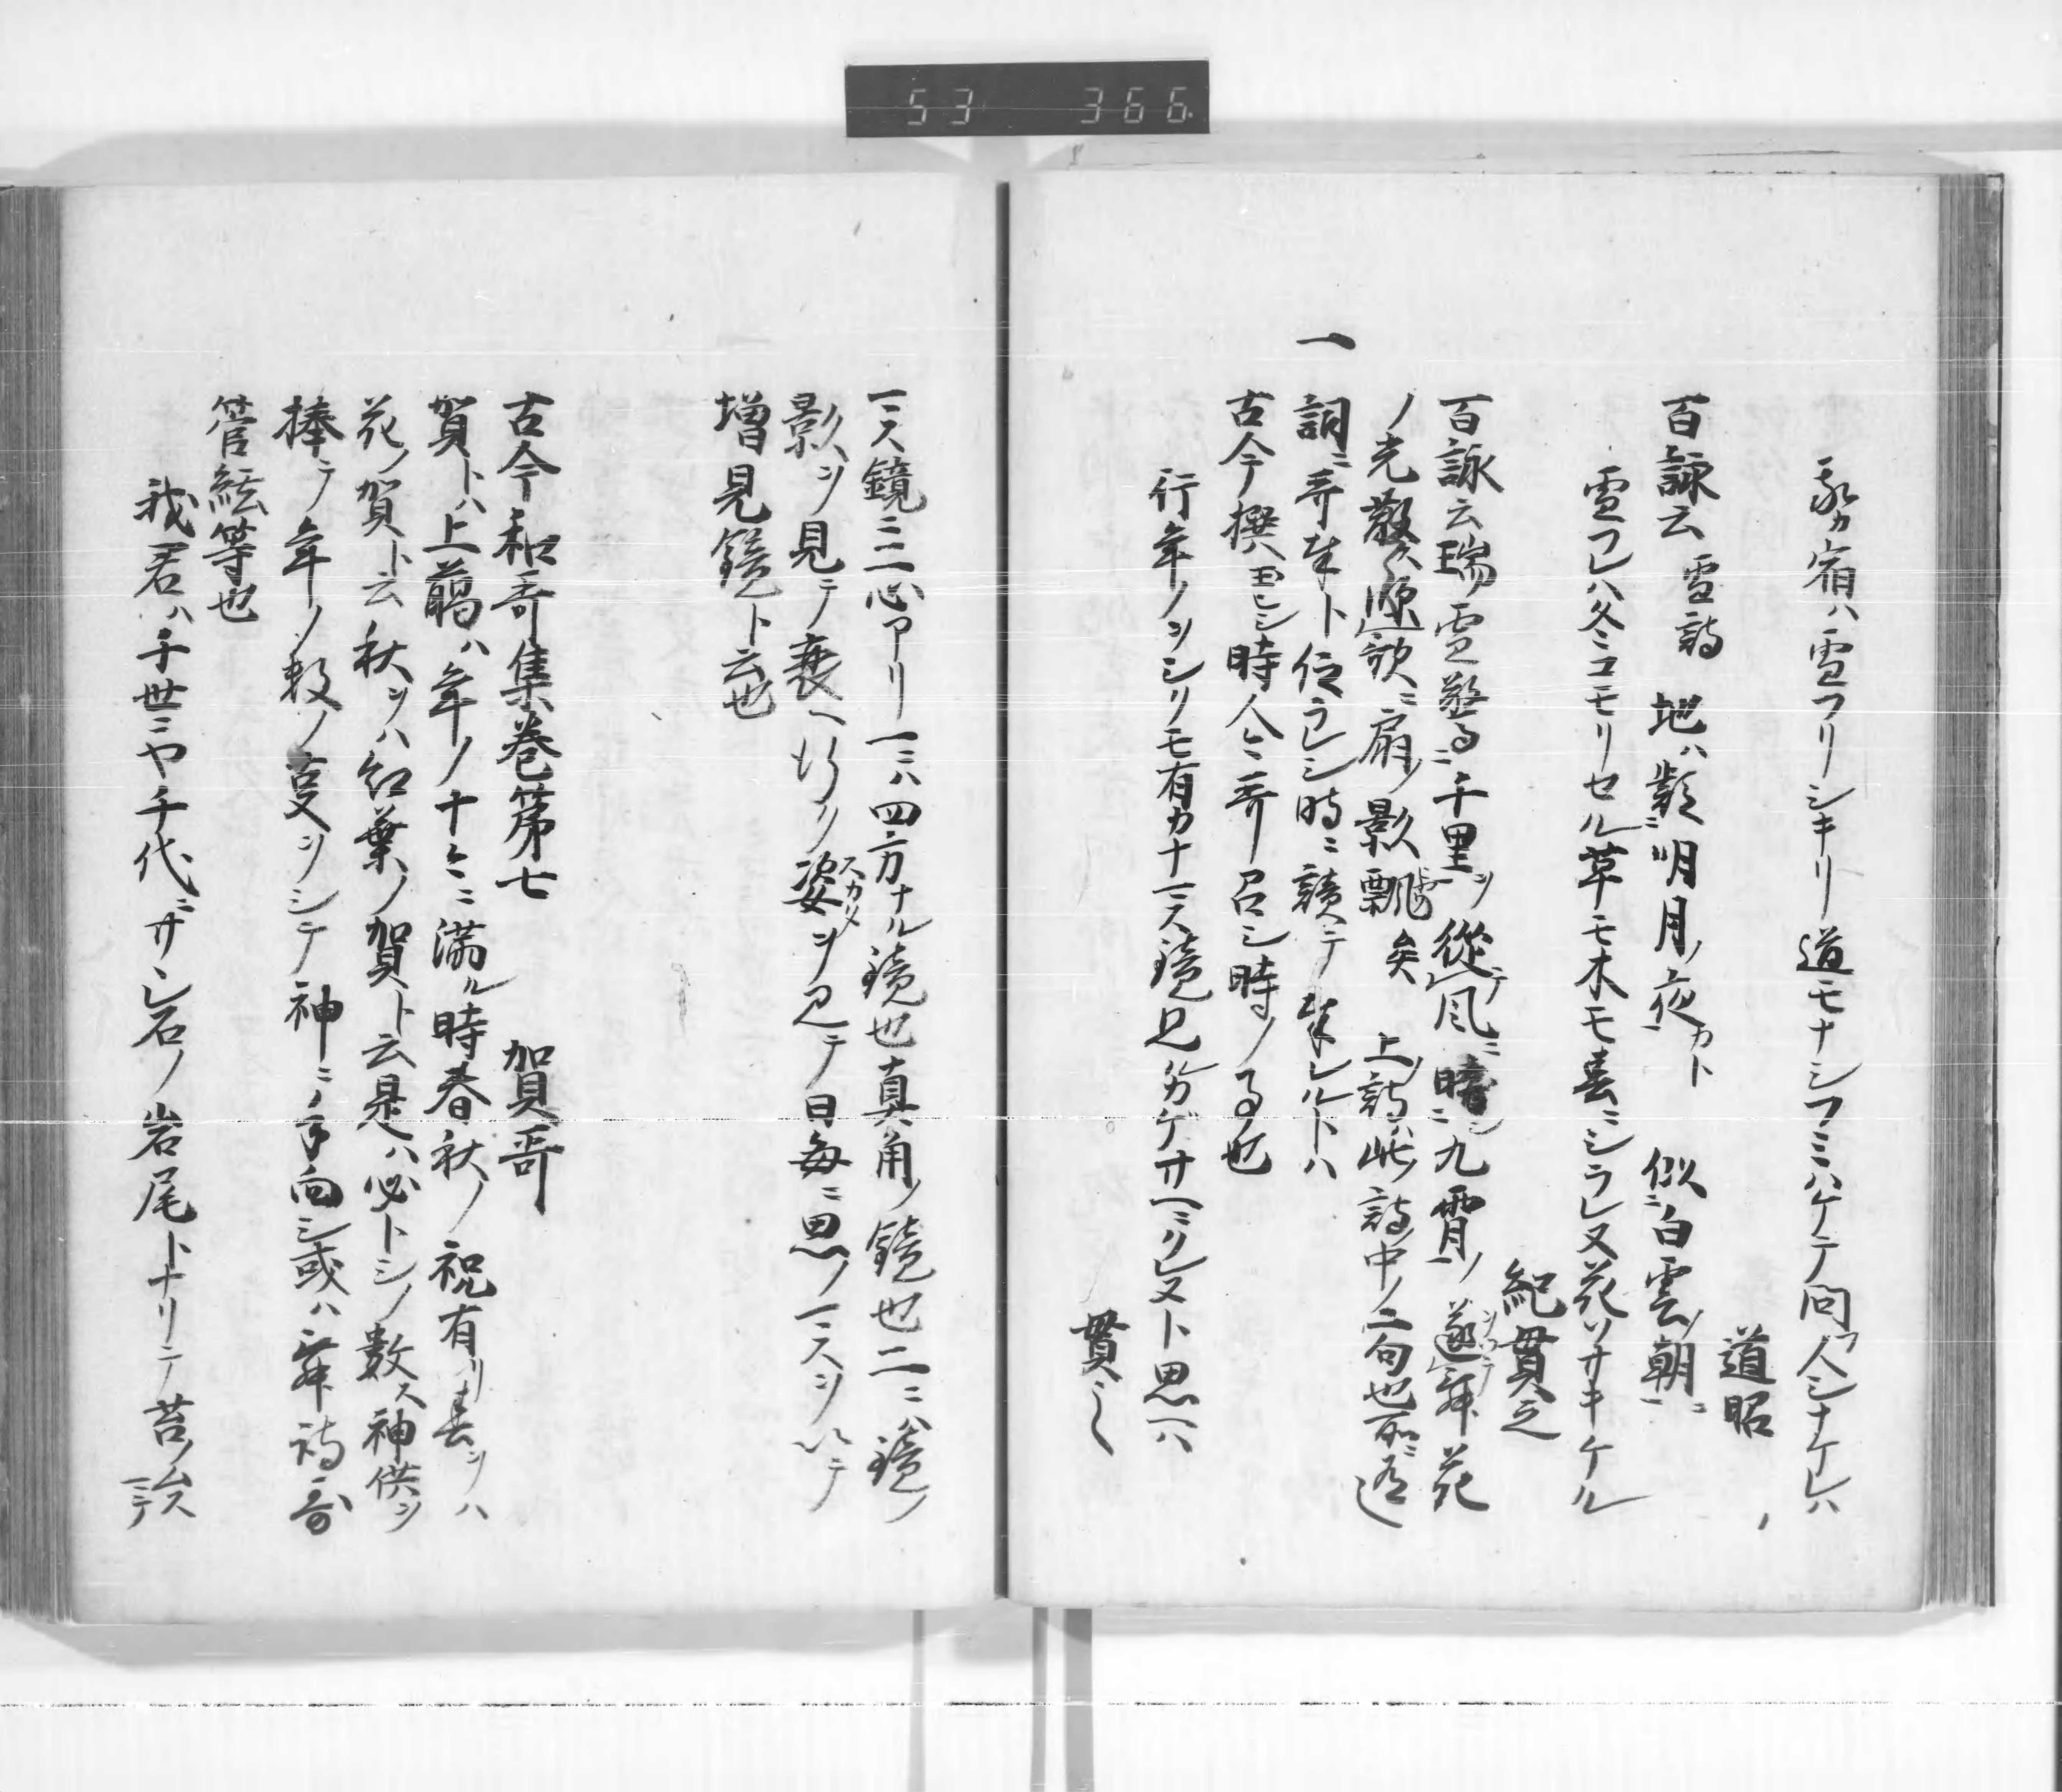 53 366
我カ宿ハ雪フリシキリ道モナシフミハケテ問フ人シナケレハ
道昭
百詠云 雪詩 地ハ疑ニ明月ノ夜カト 似ニ白雲ノ朝ニ
雪フレハ冬ニコモリセル草モ木モ春ニシラレヌ花ソサキケル
紀貫之
百詠云瑞雪驚ニ千里ヲ従テ風ニ暗ニ九霄ヲ逐テ舞花
ノ光散ス 歌ニ扇ノ影飄矣 上ノ詩ハ此ノ詩ノ中ノ二句也
一 詞ニ哥奉ト位ラレシ時ニ読テ奉レルトハ
古今撰玉ヒシ時人々ニ哥召シ時ノ事也
行年ノヲシクモ有カナマス鏡見ル影サヘニクレヌト思ヘハ
貫之
マス鏡ニ三心アリ一ニハ四方ナル鏡也真角ノ鏡也二ニハ鏡ノ
影ヲ見テ衰ヘ行ク姿スカタヲ見テ日毎ニ思ノマスヲ以テ
増見鏡ト云也
古今和哥集巻第七 賀哥
賀トハ上﨟ハ年ノ十々ニ満ル時春秋ノ祝有リ春ヲハ
花ノ賀ト云秋ヲハ紅葉ノ賀ト云是ハ必トシノ数ス神供ヲ
捧テ年ノ数ノ変ヲシテ神ニ手向シ或ハ舞詩哥
管絃等也
我君ハ千世ニヤ千代ニサヽレ石ノ岩尾トナリテ苔ノムスマテ